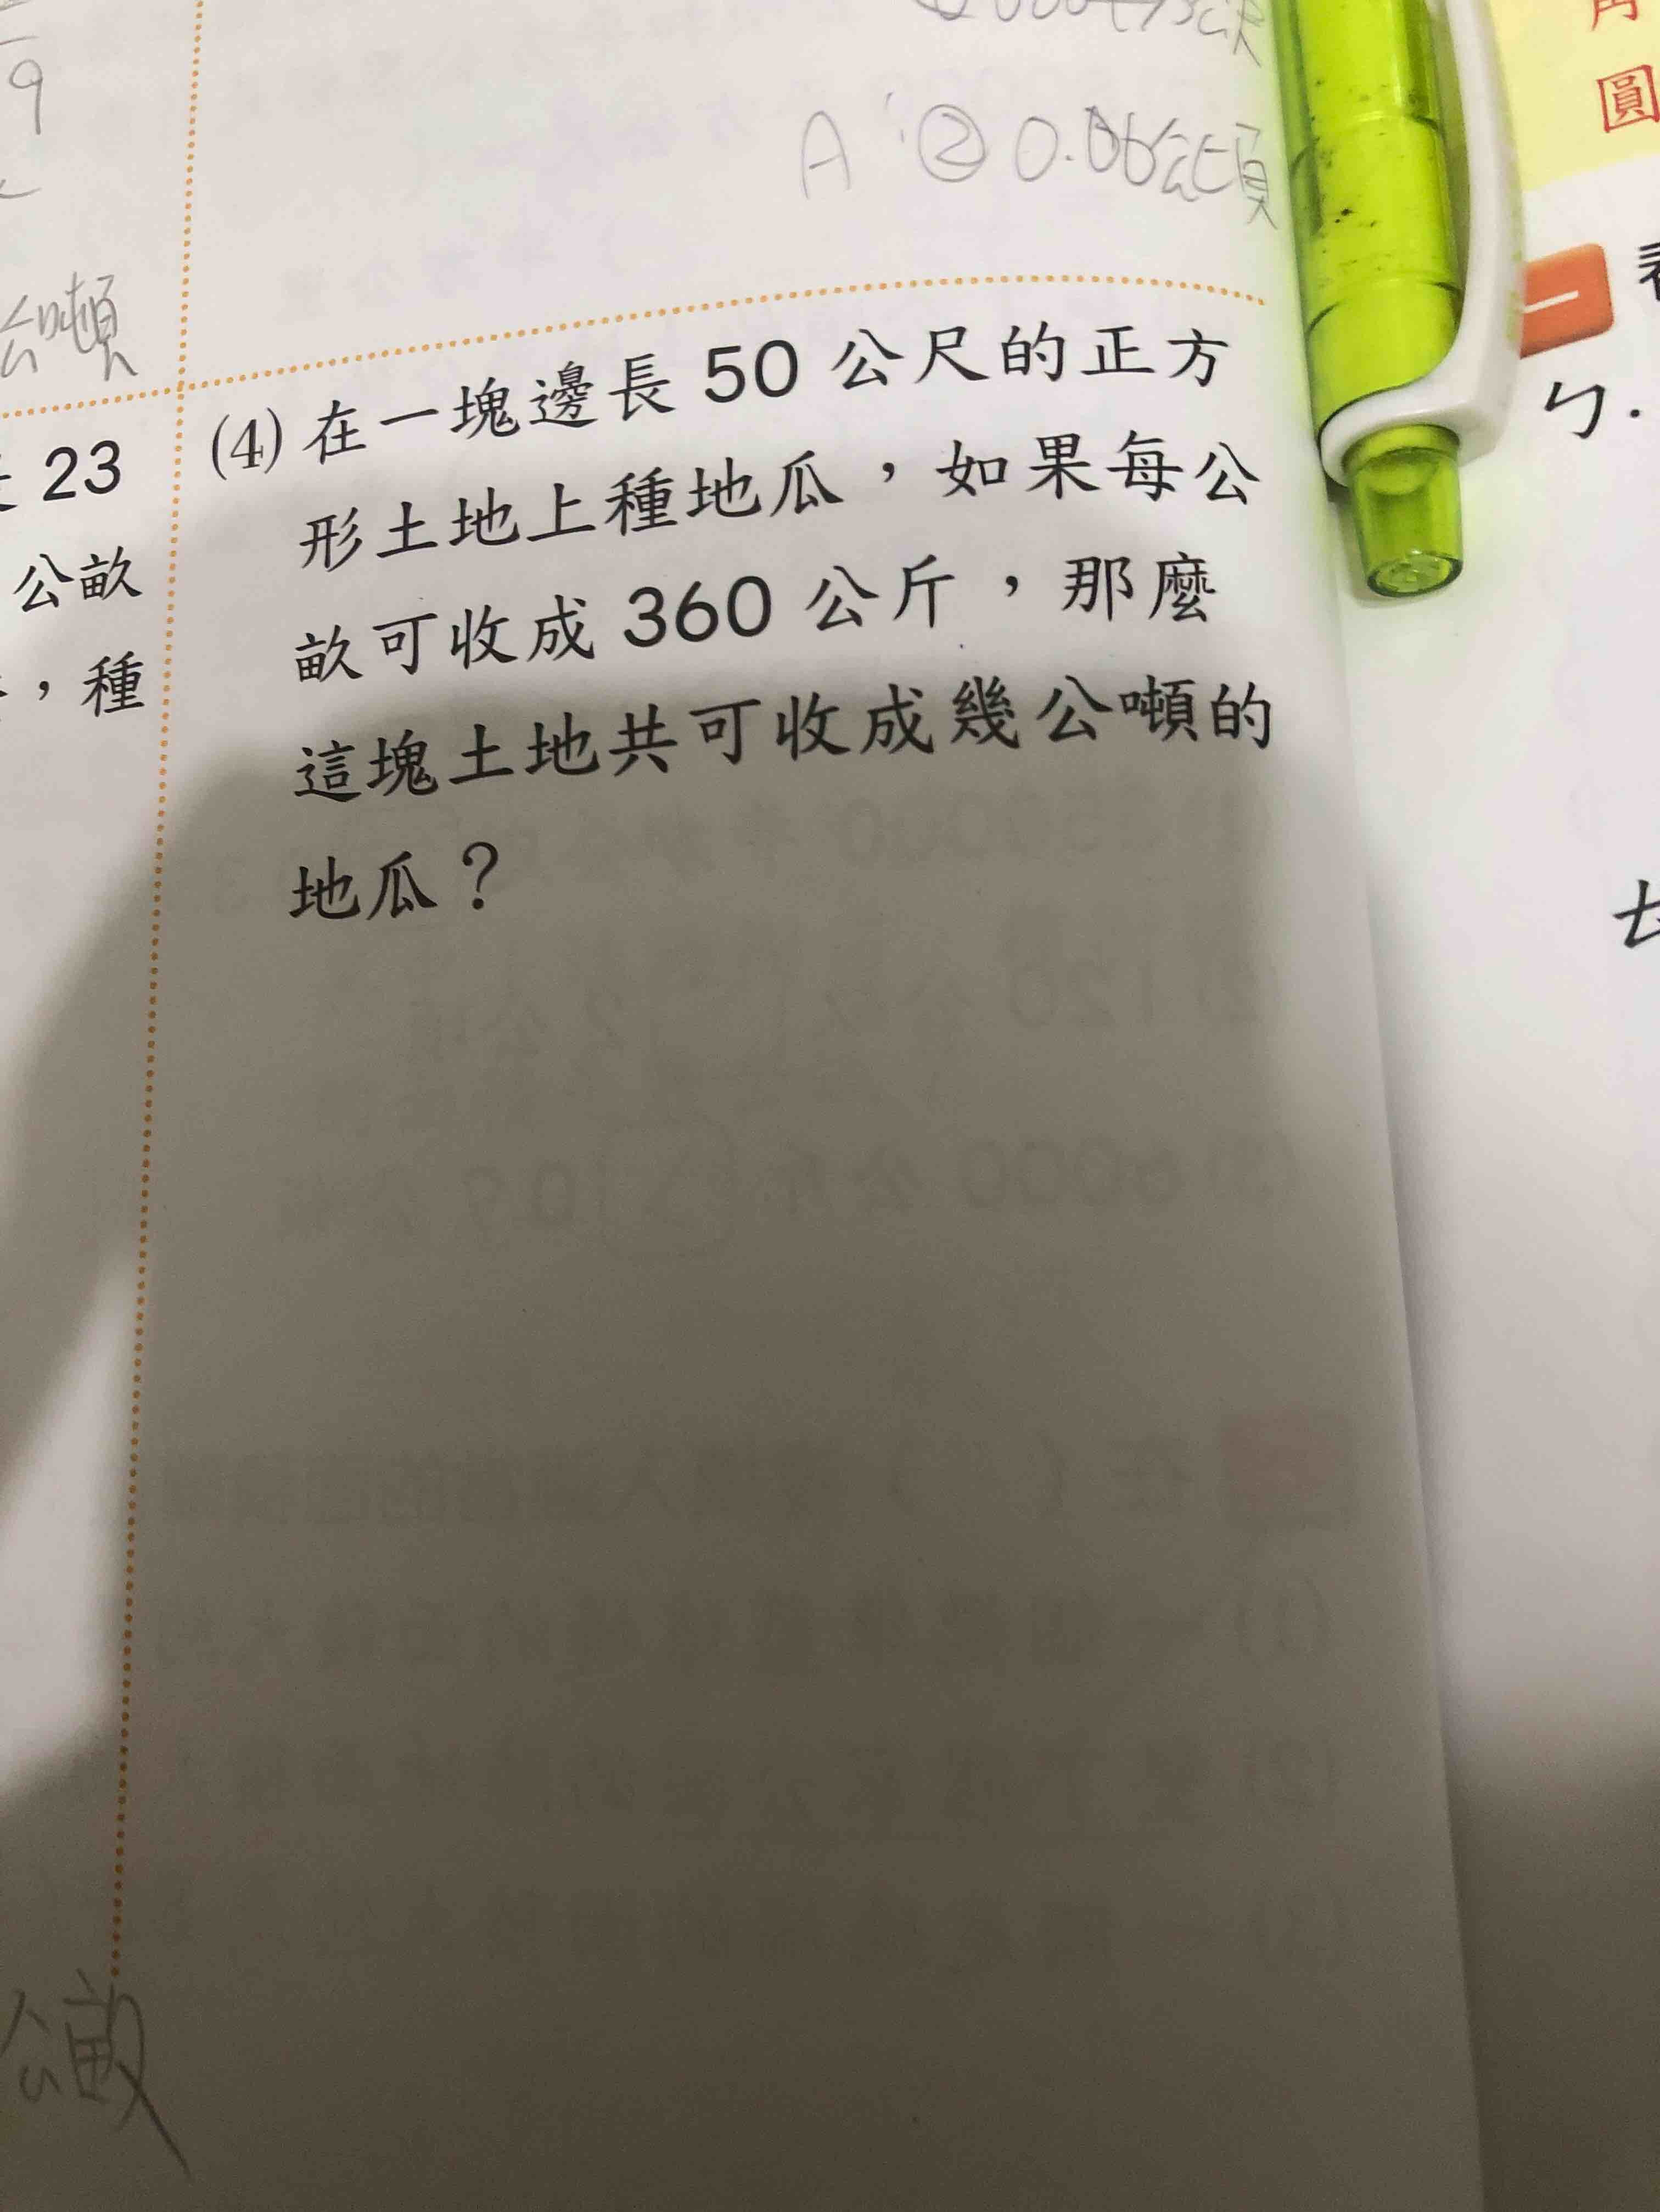 9
A：② 0.06公頃
公噸
23
公畝
，種
(4) 在一塊邊長 50 公尺的正方
形土地上種地瓜，如果每公
畝可收成 360 公斤，那麼
這塊土地共可收成幾公噸的
地瓜？
公畝
圓
一
ㄅ.
ㄊ